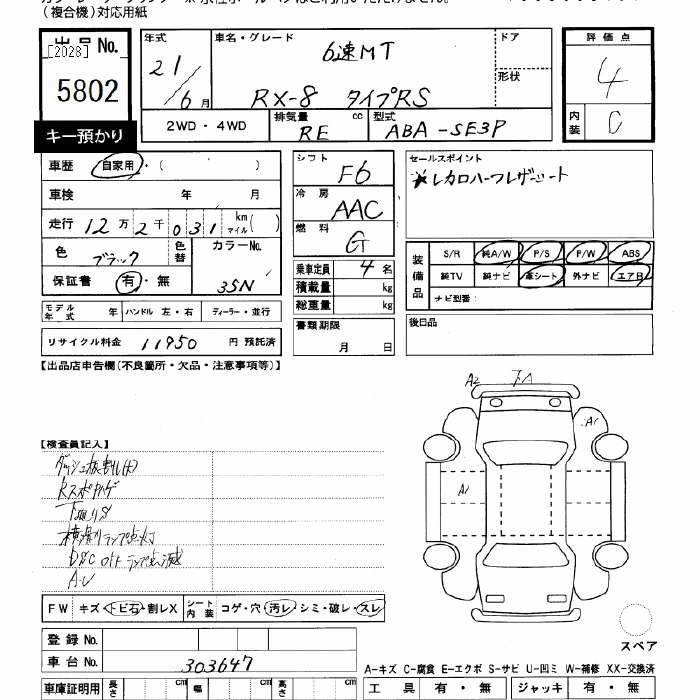 (複合機)対応用紙
出品No.
[2028]
5802
キー預かり
年式 21/6月
車名・グレード 6速MT
RX-8 タイプRS
ドア
形状
2WD・4WD 排気量 RE cc 型式 ABA-SE3P
評価点 4
内装 C
車歴 自家用・( )
車検 年 月
走行 12万2千031 km マイル( )
色 ブラック 色替 カラーNo. 35N
保証書 有・無
モデル年式 年 ハンドル 左・右 ディーラー・並行
リサイクル料金 11950 円 預託済
シフト F6
冷房 AAC
燃料 G
乗車定員 4名
積載量 kg
総重量 kg
書類期限
月 日
セールスポイント
★レカロハーフレザーシート
装備品 S/R 純A/W P/S P/W ABS
純TV 純ナビ 革シート 外ナビ エアB
ナビ型番:
後日品
【出品店申告欄(不良箇所・欠品・注意事項等)】
A2
A1
A1
【検査員記入】
下廻りS
横滑りランプ点灯
DSC OFFランプ点滅
FW キズ・トビ石・割レX シート内装 コゲ・穴・汚レ・シミ・破レ・スレ
登録No.
車台No. 303647
車庫証明用 長さ cm 幅 cm 高さ cm
スペア
A-キズ C-腐食 E-エクボ S-サビ U-凹ミ W-補修 XX-交換済
工具 有・無 ジャッキ 有・無